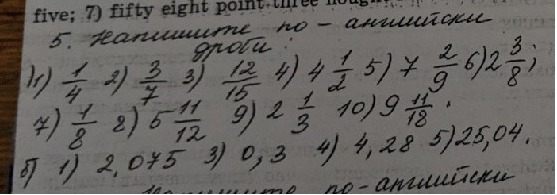 five; 7) fifty eight point three
5. Напишите по-английски
дроби:
1) 1/4 2) 3/7 3) 12/15 4) 4 1/2 5) 7 2/9 6) 2 3/8;
7) 1/8 8) 5 11/12 9) 2 1/3 10) 9 11/18.
б) 1) 2,075 3) 0,3 4) 4,28 5) 25,04.
по-английски